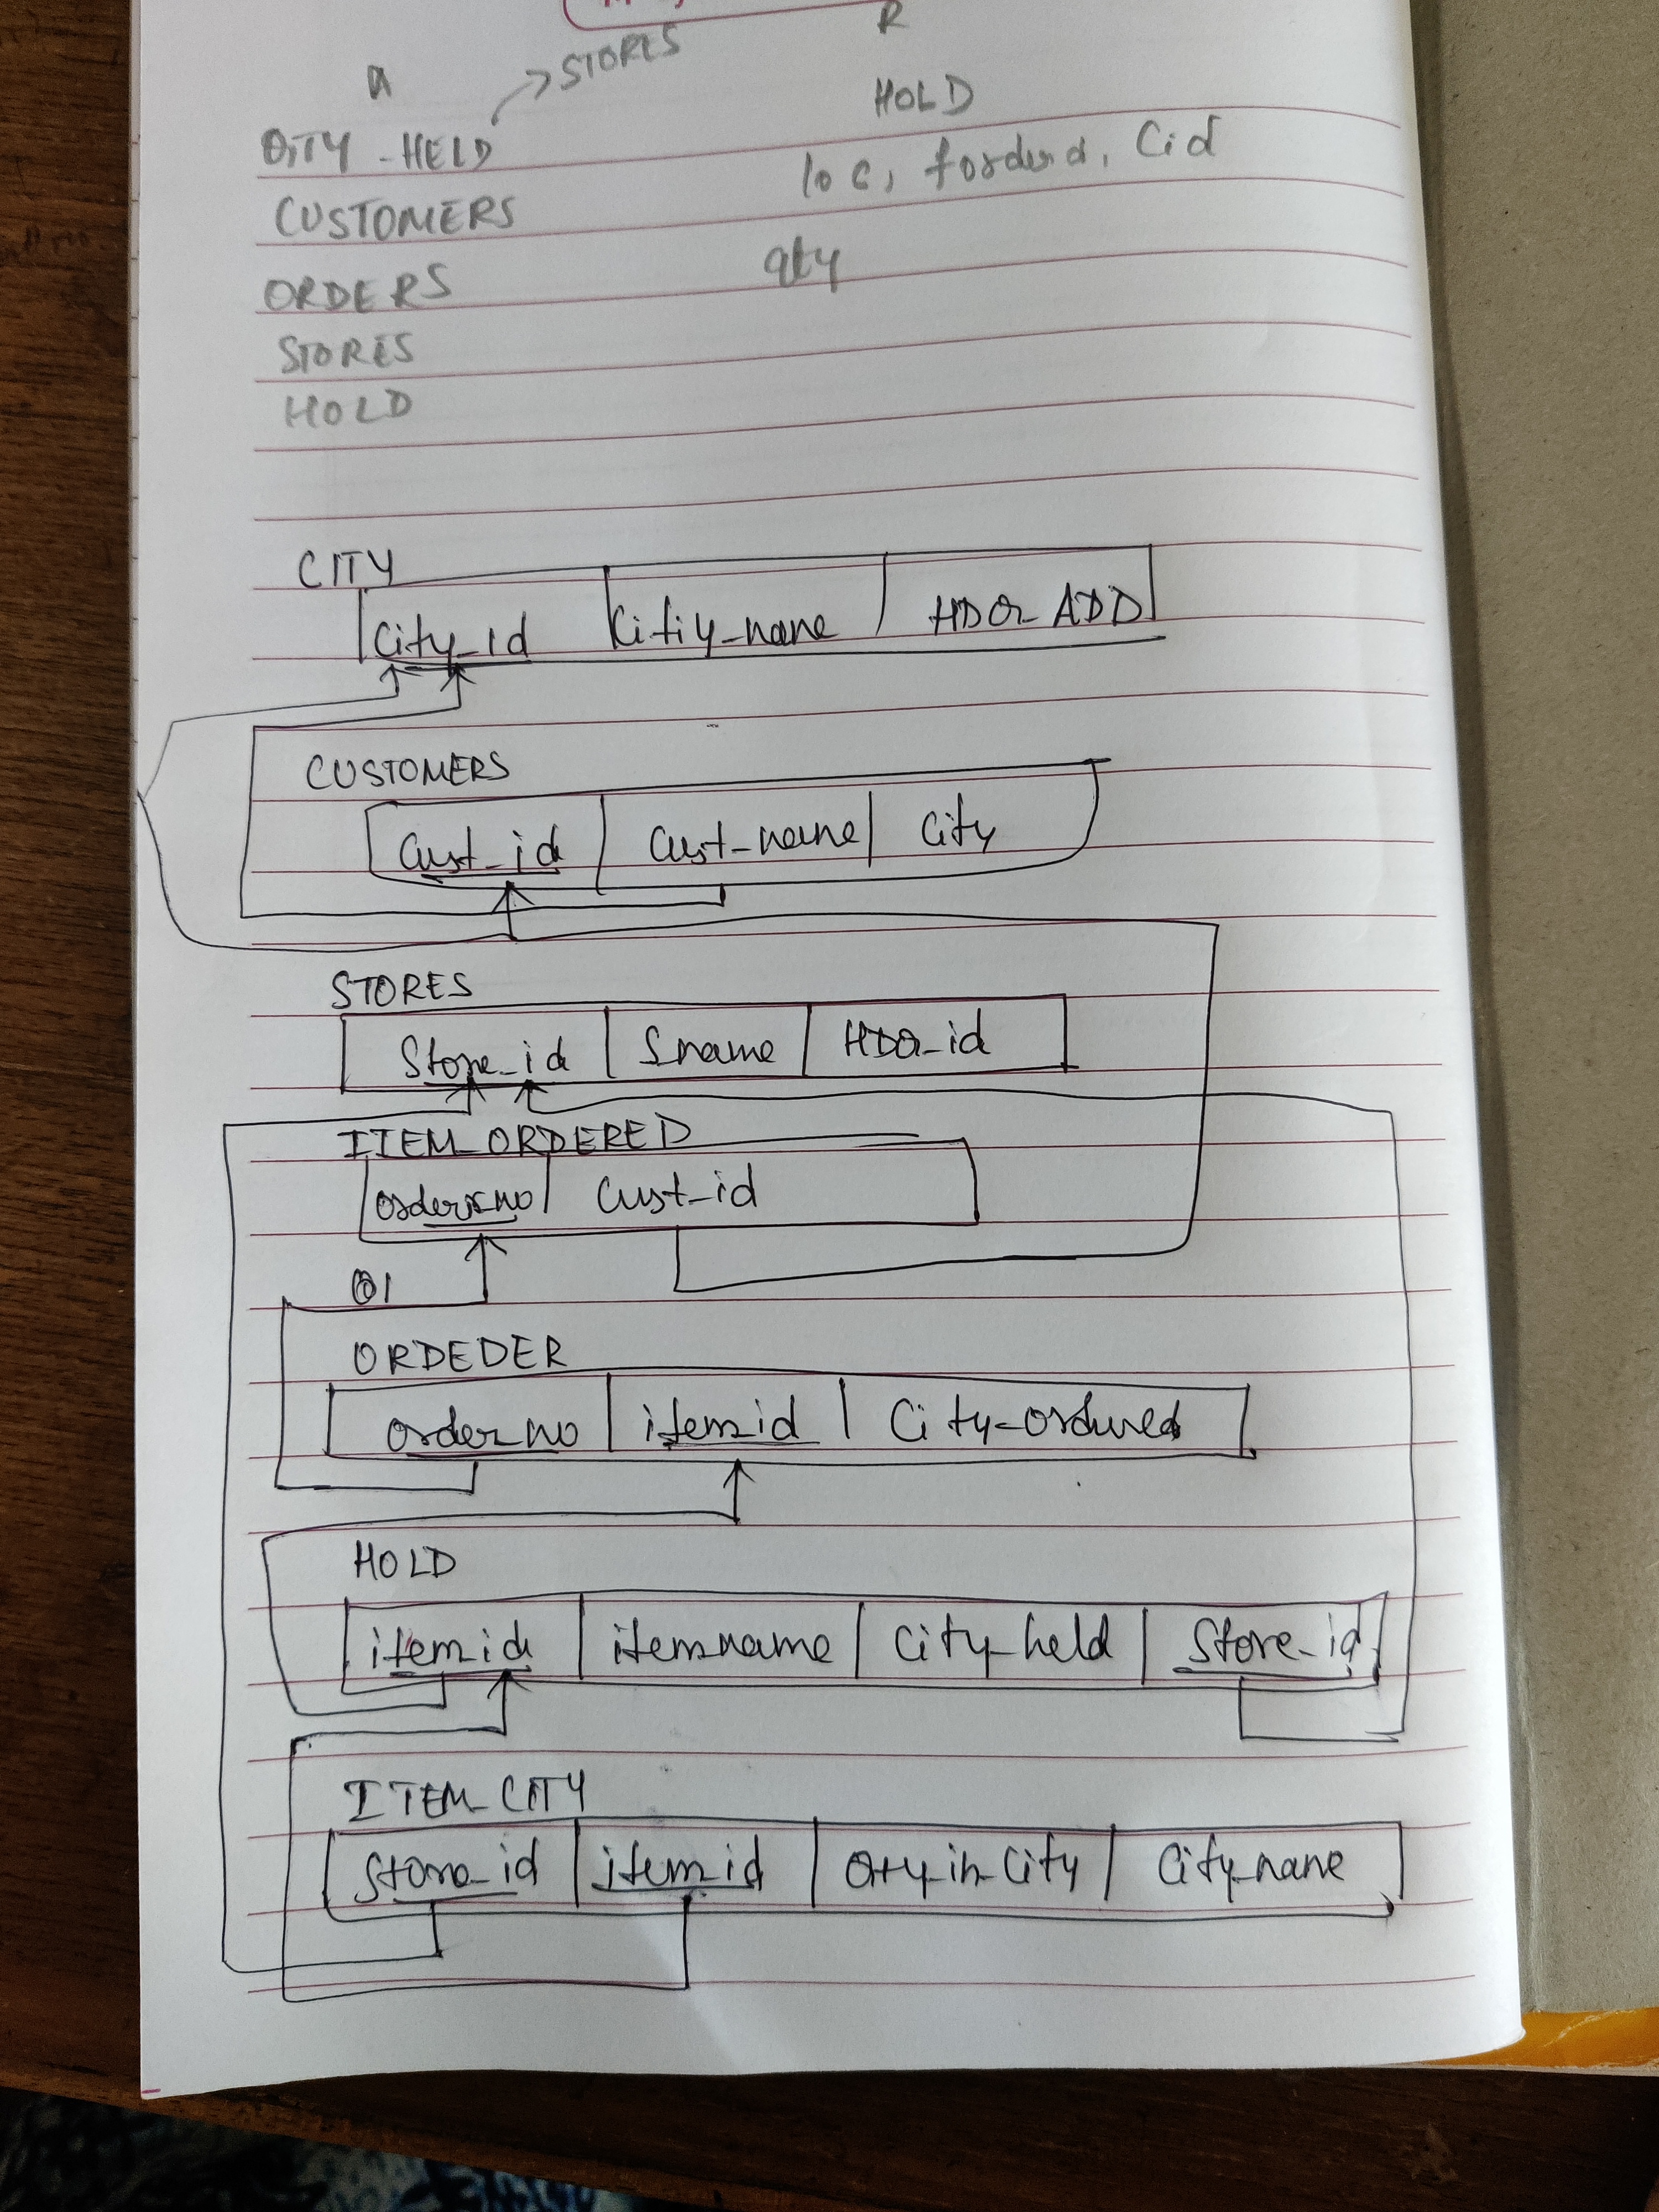 R
→ STORES
HOLD
QTY - HELD
loc, forderd, Cid
CUSTOMERS
qty
ORDERS
STORES
HOLD
CITY
City_id Citiy_name HDQ_ADD
CUSTOMERS
Cust_id Cust_name City
STORES
Store_id Sname HDQ_id
ITEM_ORDERED
order_no Cust_id
ORDEDER
order_no item_id City_ordered
HOLD
item_id item_name City_held Store_id
ITEM_CITY
Store_id item_id Qty_in_City City_name